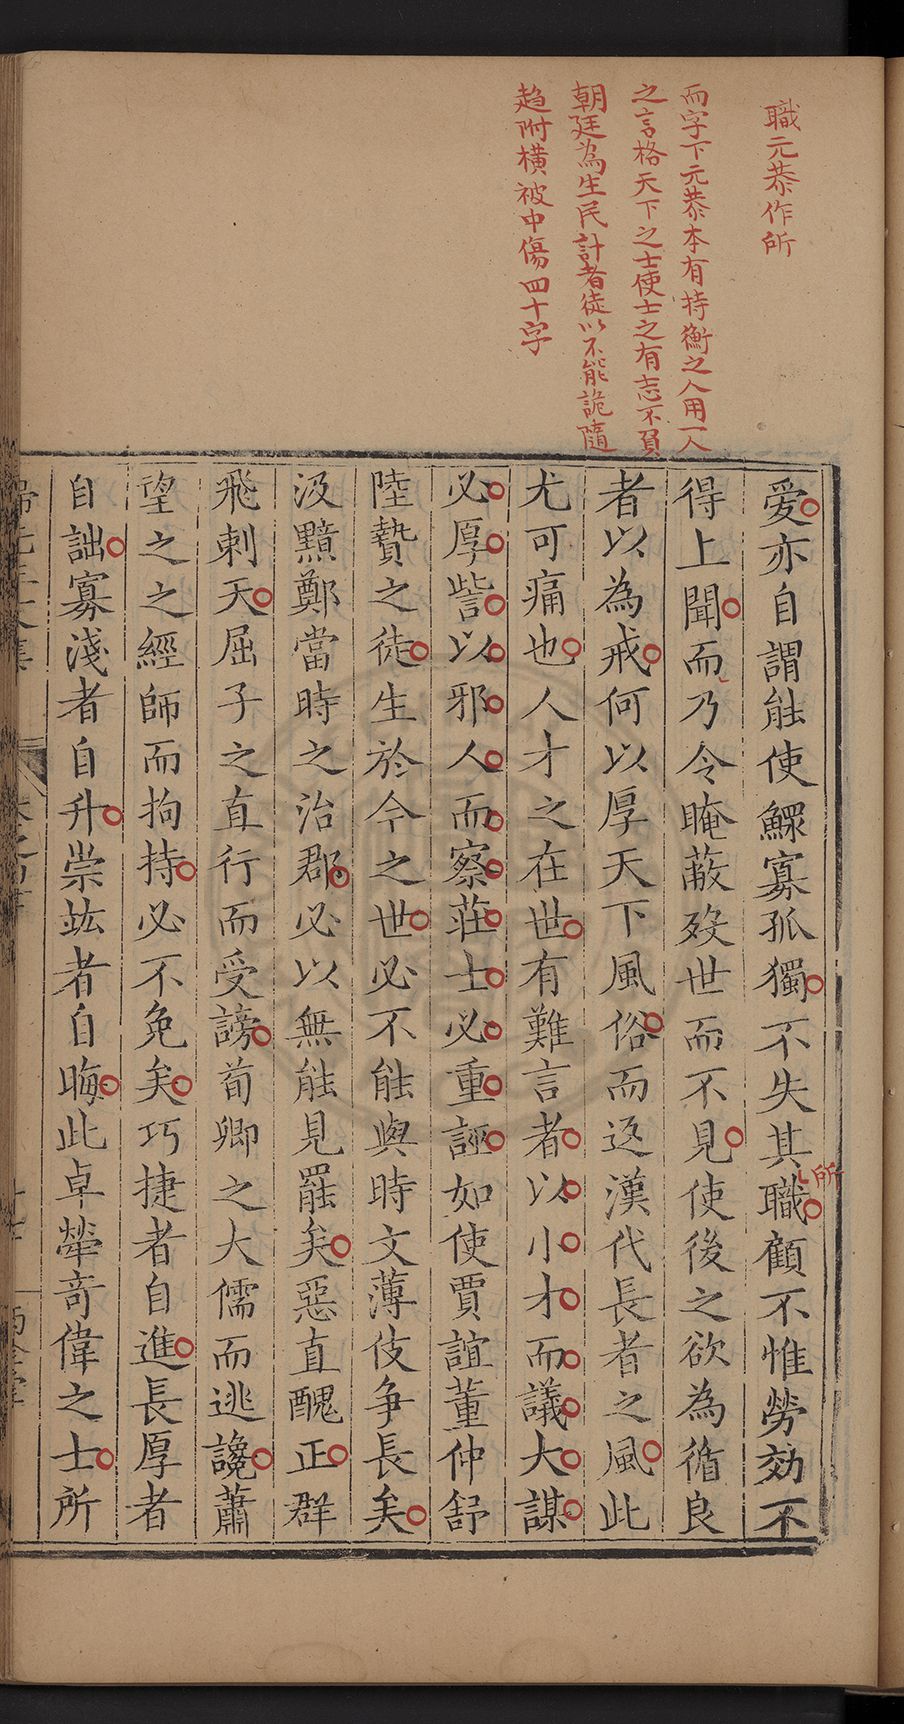 職元恭作所
而字下元恭本有持衡之人用一人
之言格天下之士使士之有志不負
朝廷為生民計者徒以不能詭隨
趋附橫被中傷四十字
爱亦自謂能使鰥寡孤獨不失其職顧不惟勞効不
所
得上聞而乃令晻蔽歿世而不見使後之欲為循良
者以為戒何以厚天下風俗而返漢代長者之風此
尤可痛也人才之在世有難言者以小才而議大謀
必厚訾以邪人而察莊士必重誣如使賈誼董仲舒
陸贄之徒生於今之世必不能與時文薄伎争長矣
汲黯鄭當時之治郡必以無能見罷矣惡直醜正群
飛刺天屈子之直行而受謗荀卿之大儒而逃讒蕭
望之之經師而拘持必不免矣巧捷者自進長厚者
自詘寡淺者自升崇竑者自晦此卓犖奇偉之士所